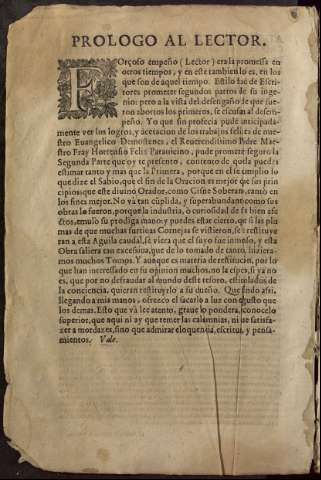 PROLOGO AL LECTOR.
FOrçoso empeño (Lector) era la promesa en
otros tiempos, y en este tambien lo es, en los
que son de aquel tiempo. Estilo fue de Escri-
tores prometer segundas partes de su inge-
nio: pero a la vista del desengaño de que fue-
ron abortos los primeros, se escusan al desem-
peño. Yo que sin profecia pude anticipada-
mente ver los logros, y acetacion de los trabajos felizes de nues-
tro Euangelico Demostenes, el Reuerendissimo Padre Maes-
tro Fray Hortensio Felis Parauicino, pude prometer seguro la
Segunda Parte que oy te presento, contento de que la puedas
estimar tanto y mas que la Primera, porque en el se cumplio lo
que dize el Sabio, que el fin de la Oracion es mejor que sus prin
cipios: que este diuino Orador, como Cisne Soberano, cantò en
los fines mejor. No và tan cũplida, y superabundante como sus
obras lo fueron, porque la industria, o curiosidad de sus bien afe
ctos, emulo su prodiga mano; y puedes estar cierto, que si las plu
mas de que muchas furtiuas Cornejas se vistieron, se restituye
ran a esta Aguila caudal, se viera que el suyo fue inmenso, y esta
Obra saliera tan excessiua, que de lo tomado de tanto, hiziera-
mos muchos Tomos. Y aunque es materia de restitucion, por lo
que han interessado en su opinion muchos, no la espero, si ya no
es, que por no defraudar al mundo deste tesoro, estimulados de
la conciencia, quieran restituyrlo a su dueño. Que siendo assi,
llegando a mis manos, ofrezco el sacarlo a luz con el gusto que
los demas. Esto que và lee atento, graue lo pondera, conocelo
superior, que aqui ni ay que temer las calumnias, ni que satisfa-
zer a mordazes, sino que admirar eloquencia, escritos, y pensa-
mientos. Vale.